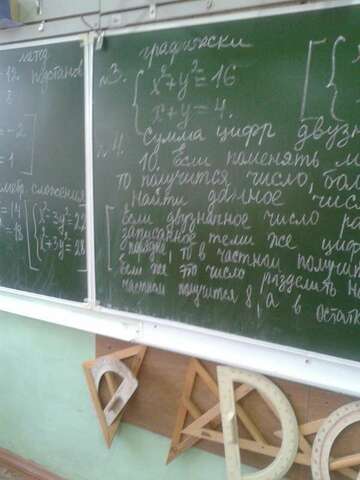 метод
подстанов
= -2
= 1
сложения
= 14
= 18
x² - 3y² = 22
x² + 3y = 28
графически
№3.
x² + y² = 16
x + y = 4.
№4. Сумма цифр двуз
10. Если поменять
то получится число, бол
Найти данное числ
Если двузначное число ра
записанное теми же цифр
то в частном получит
Если же это число разделить на
частном получится 8, а в остатк